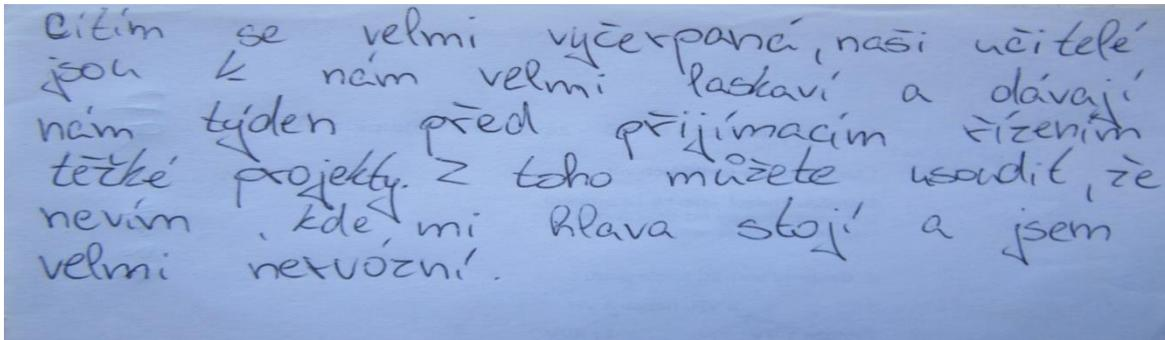 Cítím se velmi vyčerpaná, naši učitelé
jsou k nám velmi laskaví a dávají
nám týden před přijímacím řízením
těžké projekty. Z toho můžete usoudit, že
nevím, kde mi hlava stojí a jsem
velmi nervózní.